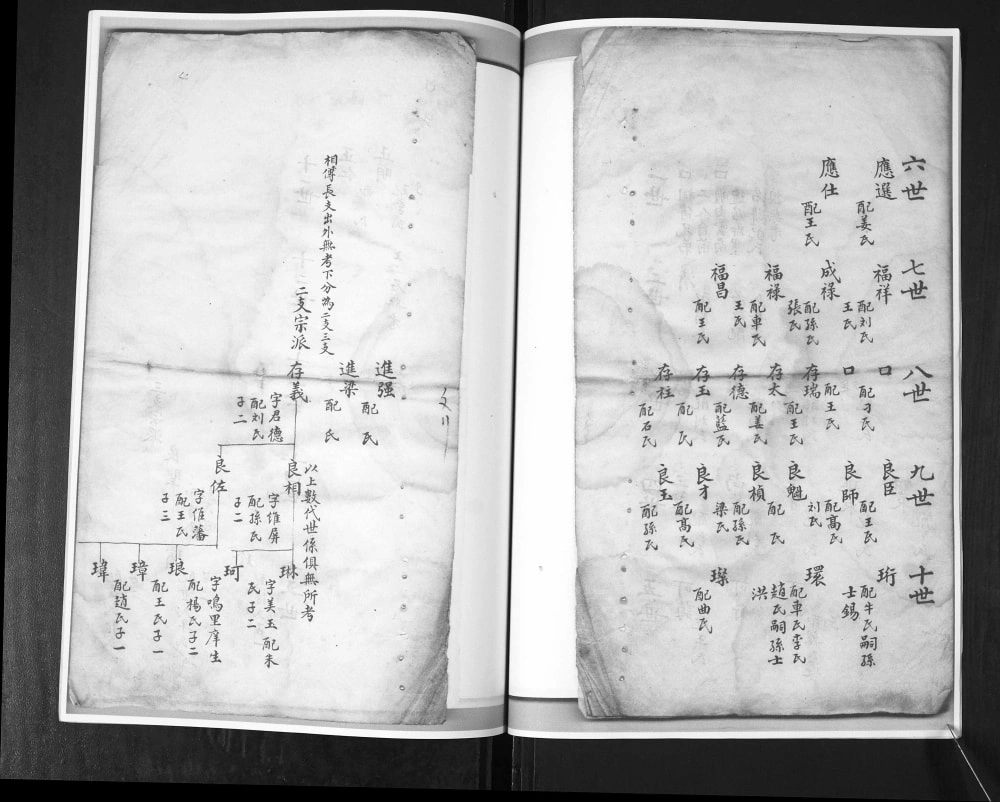 六世
應選
配姜氏
應仕
配王氏
七世
福祥
配刘氏
王氏
成禄
配孫氏
張氏
福禄
配車氏
王氏
福昌
配王氏
八世
口
配刁氏
口
配王氏
存瑞
配王氏
存太
配姜氏
存德
配藍氏
存玉
配 氏
存柱
配石氏
九世
良臣
配王氏
良師
配髙氏
刘氏
良魁
配 氏
良楨
配孫氏
梁氏
良才
配髙氏
良玉
配孫氏
十世
珩
配牛氏嗣孫
士錫
環
配車氏李氏
趙氏嗣孫士
洪
璨
配曲氏
進强
配 氏
進梁
配 氏
相傳長支出外無考下分為二支三支
二支宗派
以上數代世係俱無所考
存義
字君德
配刘氏
子二
良相
字維屏
配孫氏
子二
良佐
字維藩
配王氏
子三
琳
字美玉配朱
氏子二
珂
字鳴里庠生
配楊氏子二
琅
配王氏子一
璋
配趙氏子一
瑋